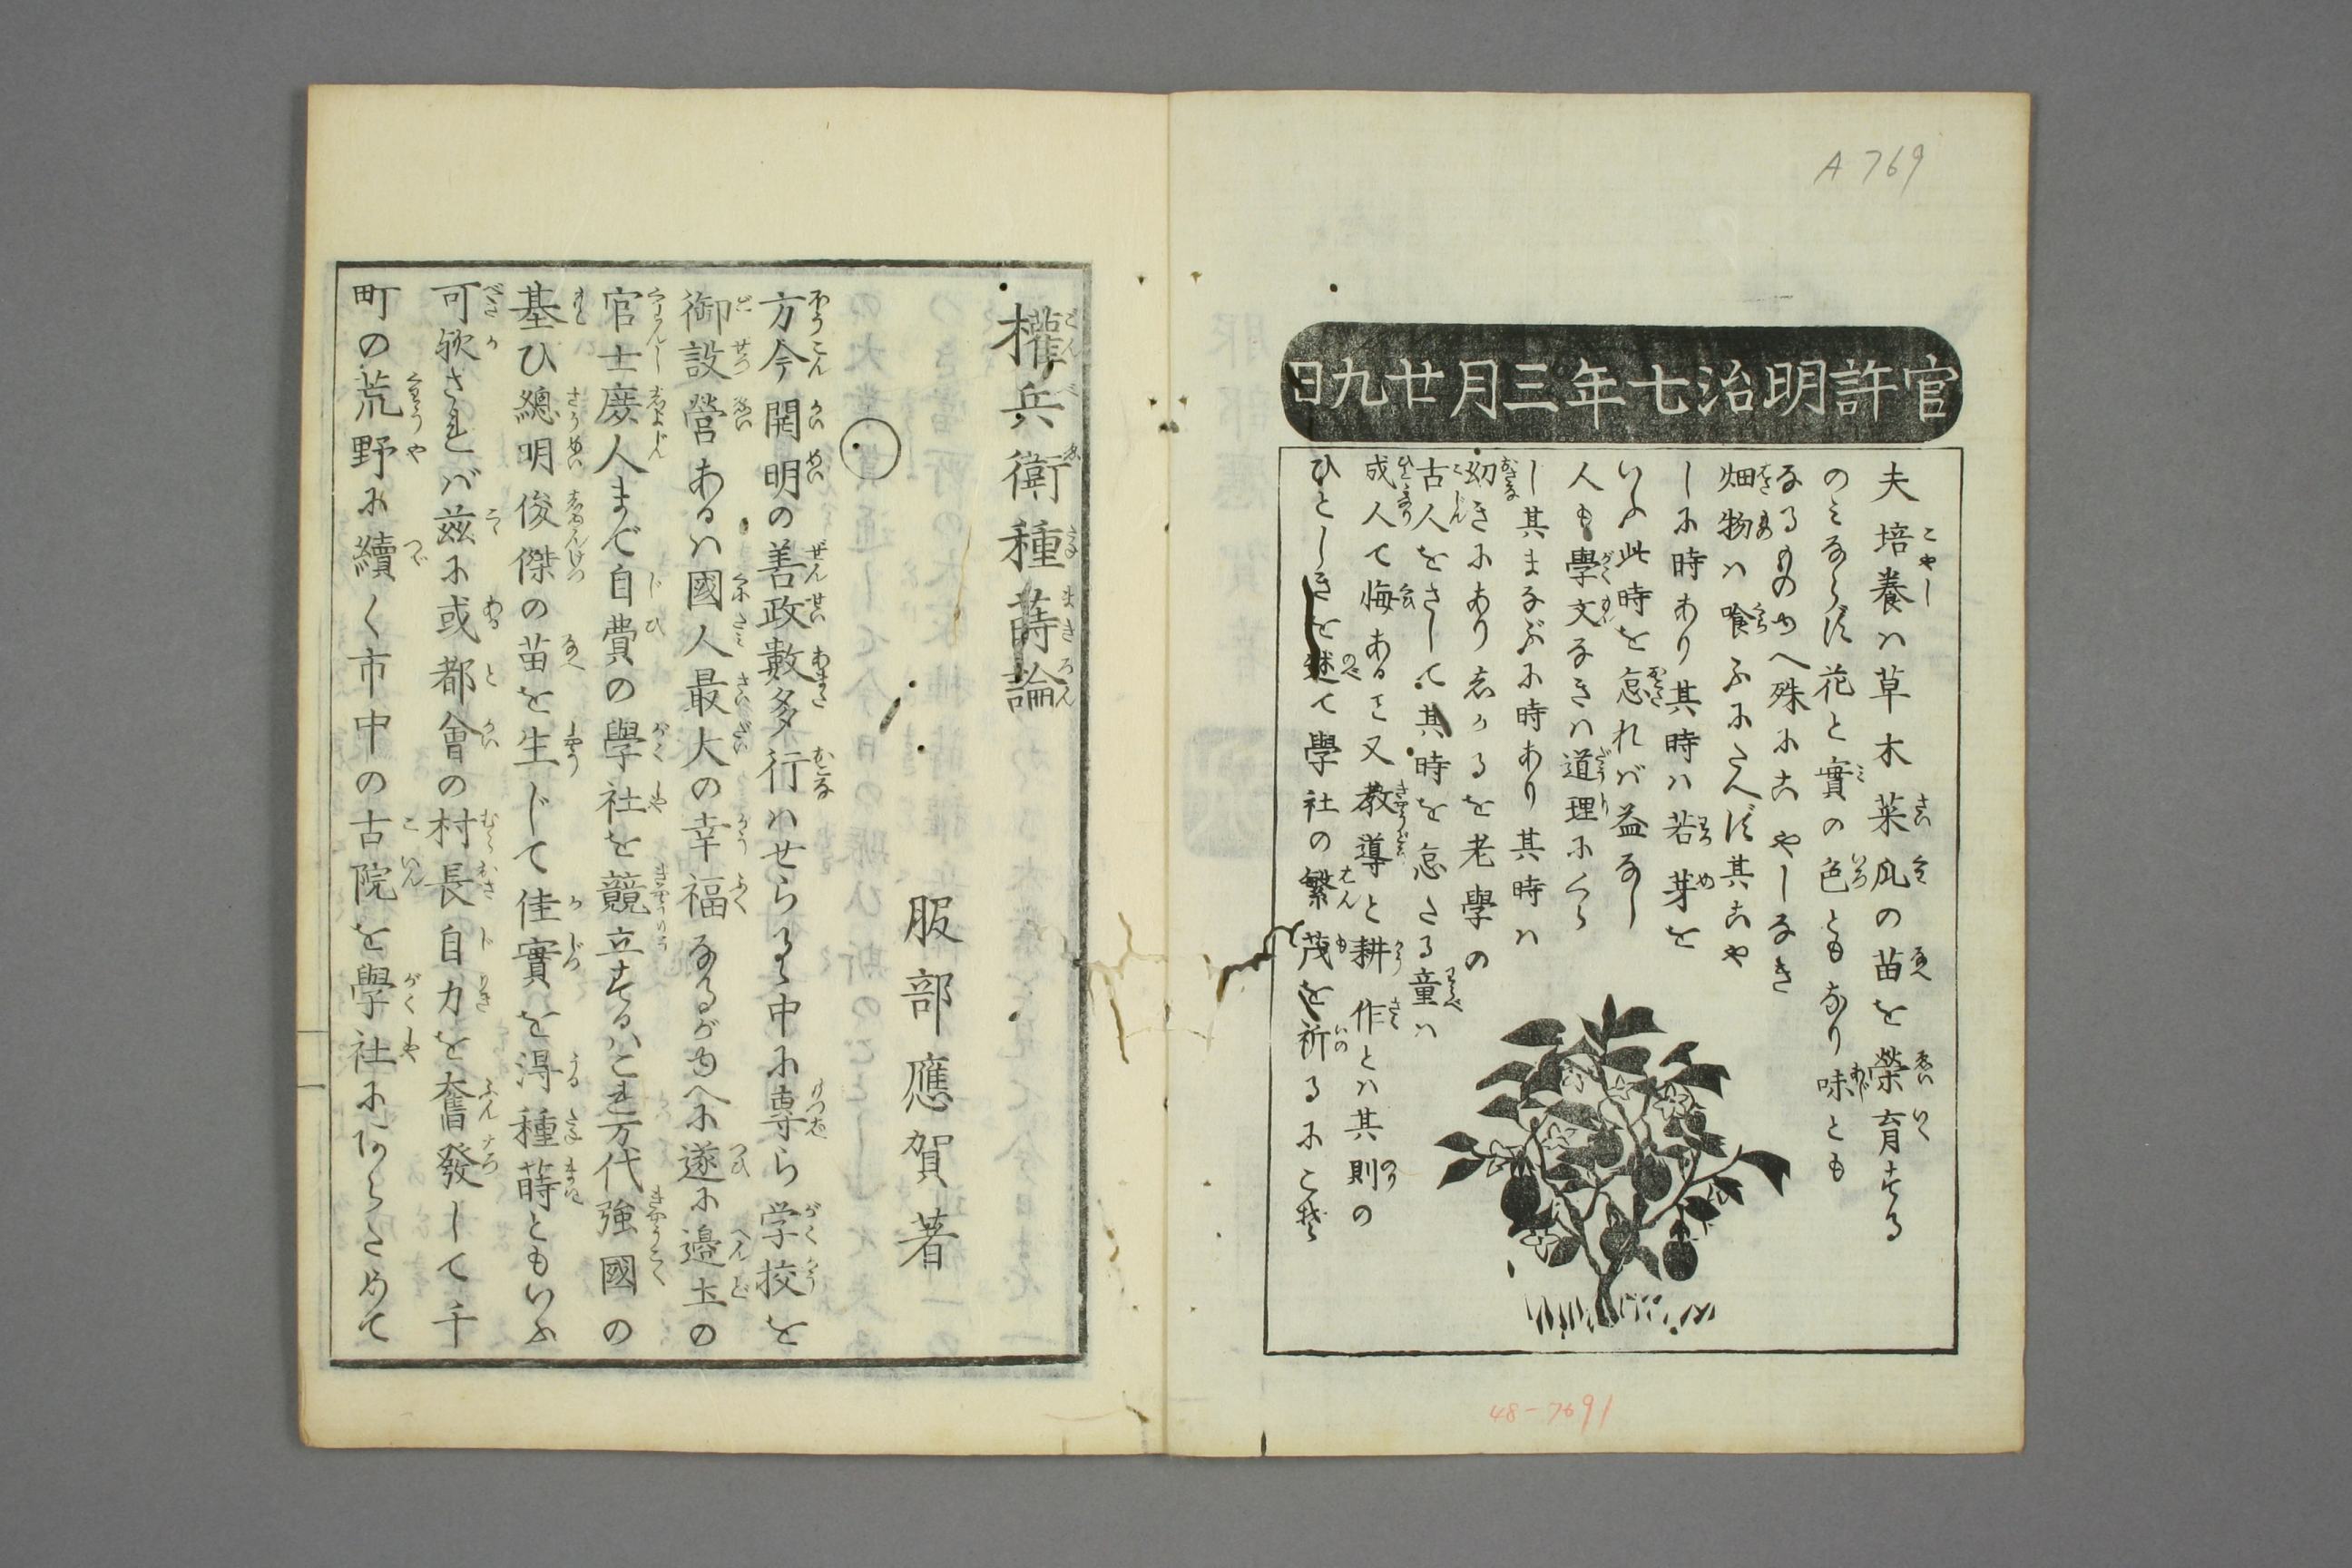 A 769
官許明治七年三月廿九日
夫培養ハ草木菜瓜の苗を榮育する
のミならず花と實の色ともなり味とも
なるものゆへ殊にこやしなき
畑物ハ喰ふにたへず其こや
しに時あり其時ハ若芽を
いふ此時を怠れバ益なし
人も學文なきハ道理にくら
し其まなぶに時あり其時ハ
幼きにありしかるを老學の
古人をさして其時を怠たる童ハ
成人て悔あるミ又教導と耕作とハ其則の
ひとしきを述て學社の繁茂を祈るにこそ
48-7691
權兵衛種蒔論
服部應賀著
方今開明の善政數多行ハせらるゝ中に専ら学校を
御設營あるハ國人最大の幸福なるがゆへに遂に邉土の
官士庶人まで自費の學社を競立するハこれ万代強國の
基ひ總明俊傑の苗を生じて佳實を得種蒔ともいふ
可歟されバ茲に或都會の村長自力を奮發して千
町の荒野に續く市中の古院を學社にあらためて